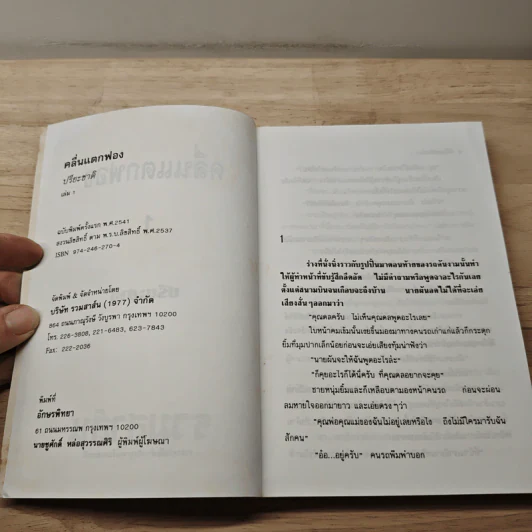 คลื่นแตกฟอง
ปรียะชาติ
เล่ม 1
ฉบับพิมพ์ครั้งแรก พ.ศ.2541
สงวนลิขสิทธิ์ ตาม พ.ร.บ.ลิขสิทธิ์ พ.ศ.2537
ISBN 974-246-270-4
จัดพิมพ์ & จัดจำหน่ายโดย
บริษัท รวมสาส์น (1977) จำกัด
864 ถนนภาณุรังษี วังบูรพา กรุงเทพฯ 10200
โทร. 226-3808, 221-6483, 623-7843
Fax: 222-2036
พิมพ์ที่
อักษรพิทยา
61 ถนนมหรรณพ กรุงเทพฯ 10200
นายชูศักดิ์ หล่อสุวรรณศิริ ผู้พิมพ์ผู้โฆษณา
1
ร่างที่นั่งนิ่งราวกับรูปปั้นมาตอนท้ายของรถคันงามนั้นทำ
ให้ผู้ทำหน้าที่ขับรู้สึกอึดอัด ไม่มีคำถามหรือพูดจาอะไรกันเลย
ตั้งแต่สนามบินจนเกือบจะถึงบ้าน นายผันอดไม่ได้ที่จะเอ่ย
เสียงสั่น ๆ ลอดมาว่า
“คุณดลครับ ไม่เห็นคุณดลพูดอะไรเลย”
ใบหน้าคมเข้มนั้นเงยขึ้นมองมาทางคนรถเก่าแก่แล้วก็กระตุก
ยิ้มที่มุมปากเล็กน้อยก่อนจะเอ่ยเสียงทุ้มน่าฟังว่า
“นายผันจะให้ฉันพูดอะไรล่ะ”
“ก็คุยอะไรก็ได้นี่ครับ ที่คุณดลอยากจะคุย”
ชายหนุ่มยิ้มและก็เหลือบตามองหน้าคนรถ ก่อนจะผ่อน
ลมหายใจออกมายาว และเอ่ยตรง ๆ ว่า
“คุณพ่อคุณแม่ของฉันไม่อยู่เลยหรือไง ถึงไม่มีใครมารับฉัน
สักคน”
“อ้อ...อยู่ครับ” คนรถพึมพำบอก